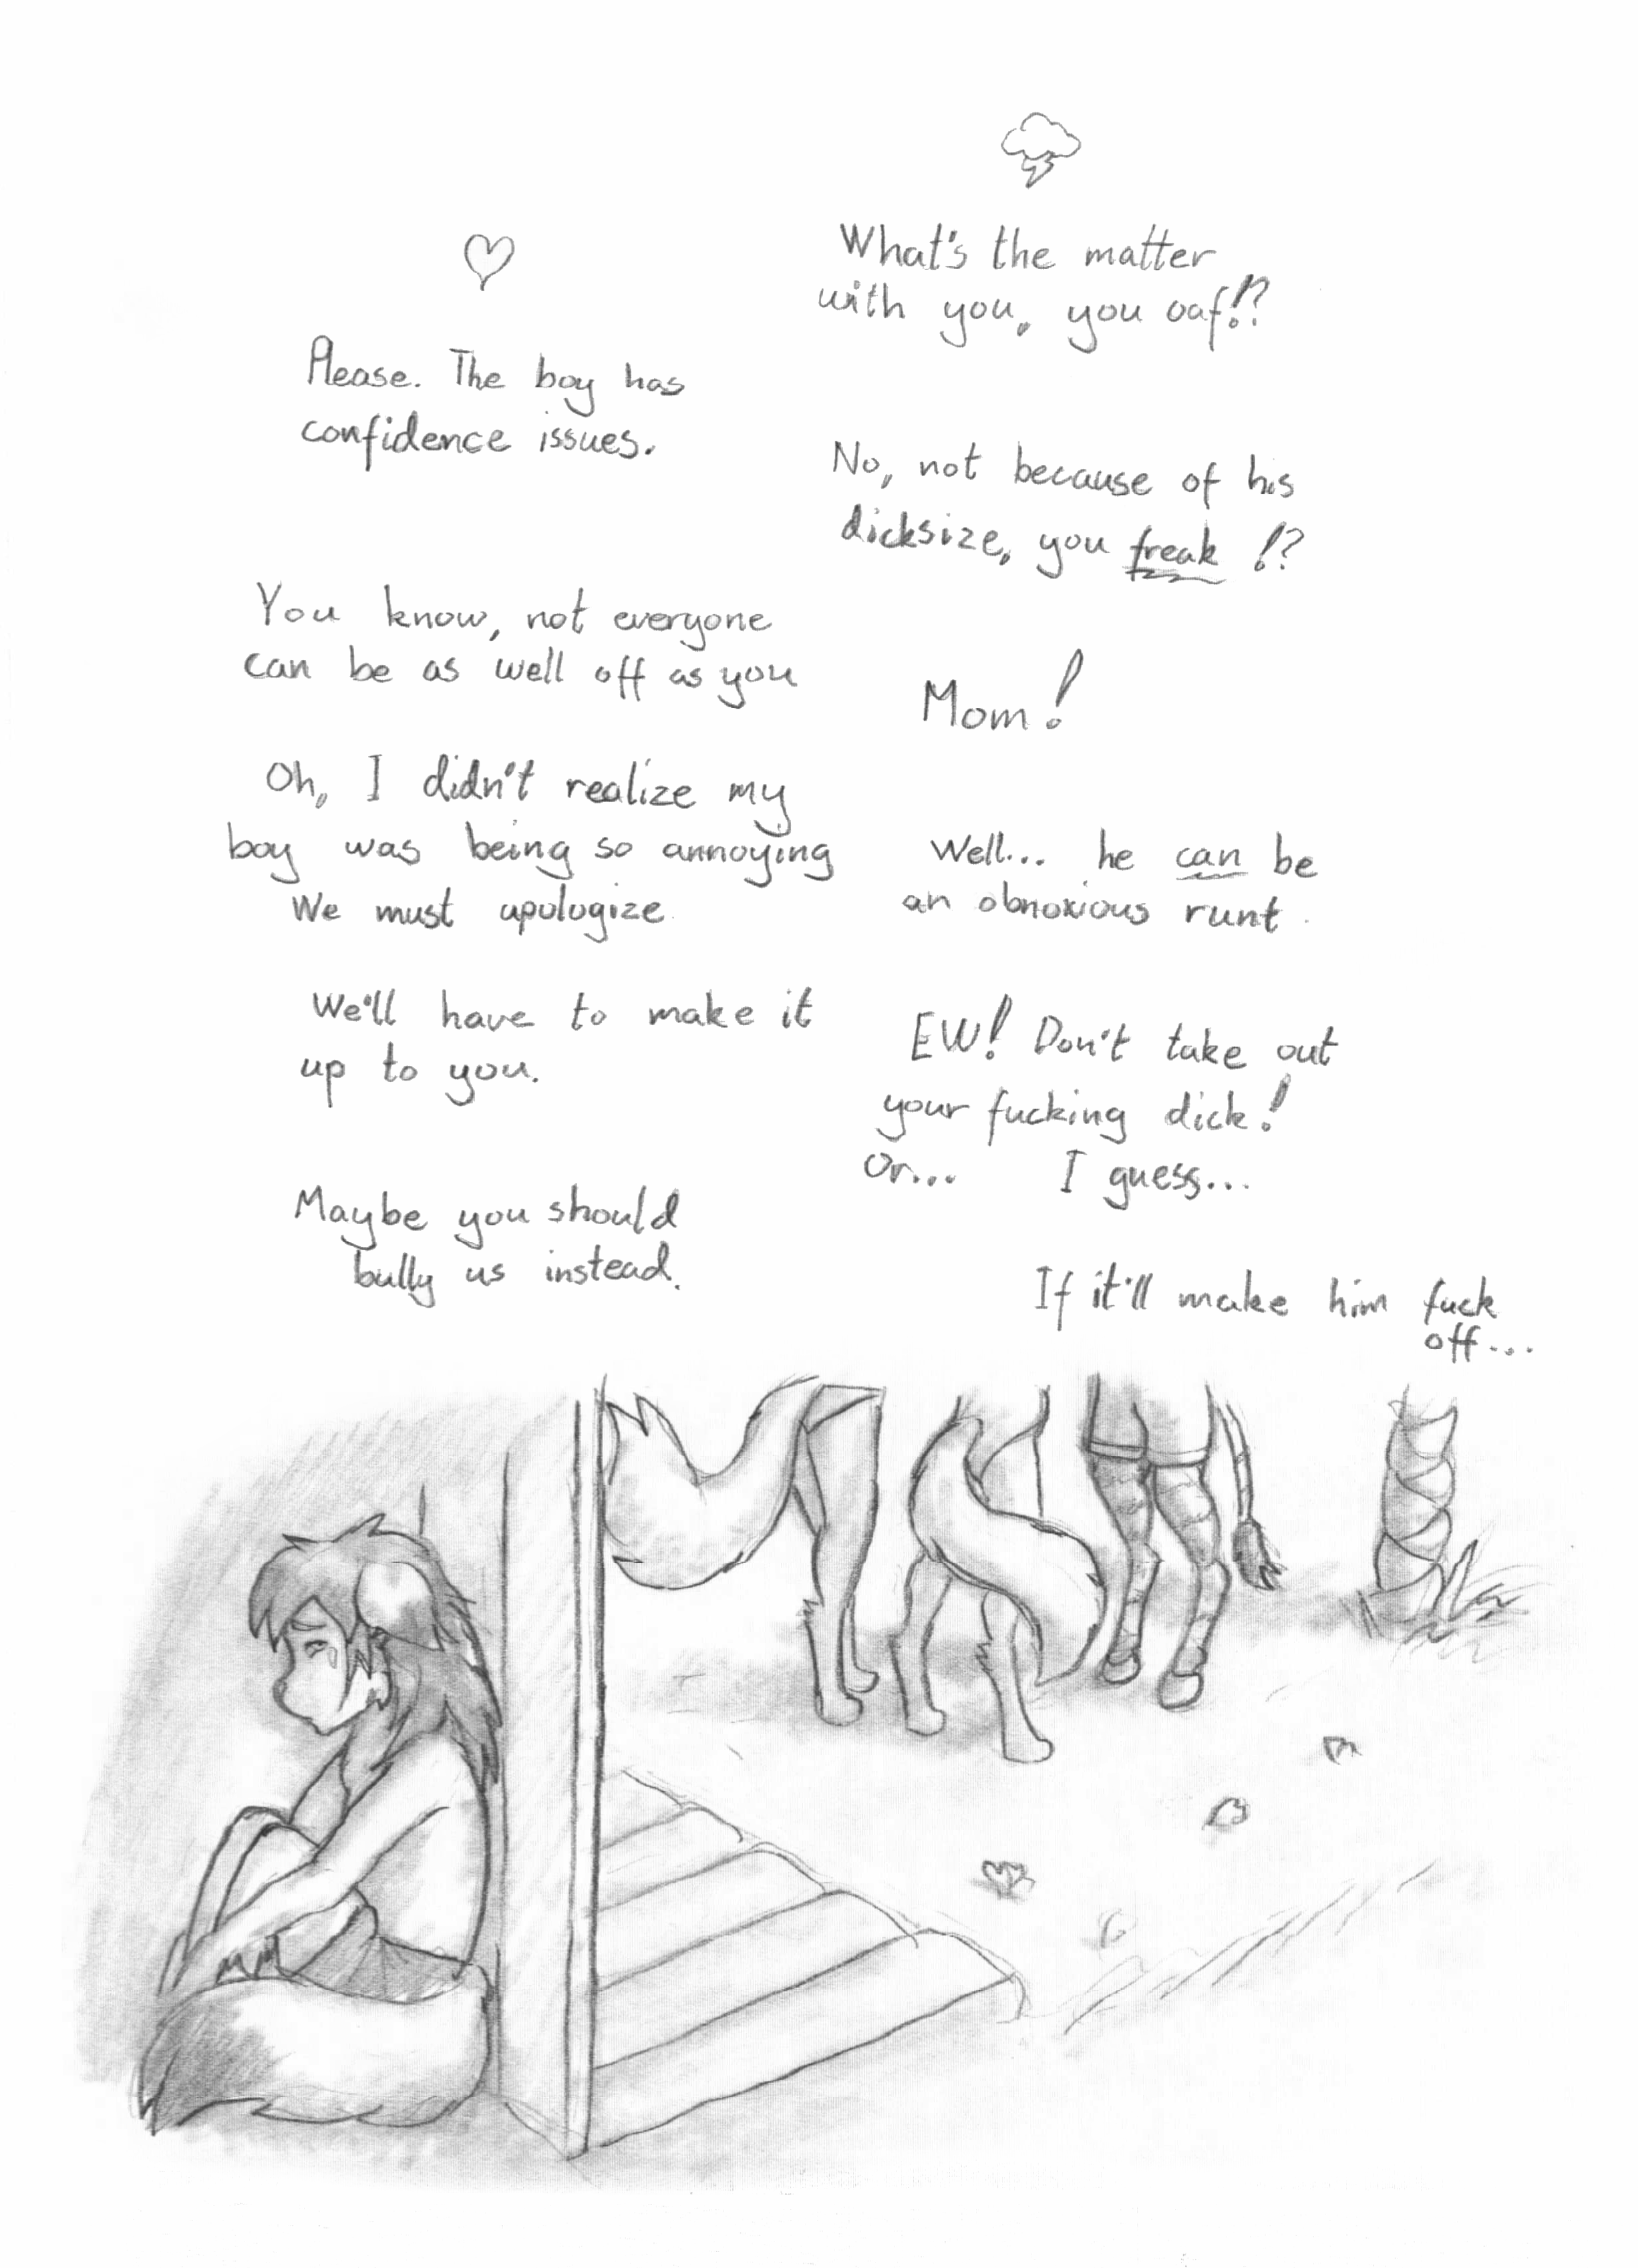 What's the matter
with you, you oaf!?
Please. The boy has
confidence issues.
No, not because of his
dicksize, you freak !?
You know, not everyone
can be as well off as you
Mom!
Oh, I didn't realize my
boy was being so annoying
We must apologize.
Well... he can be
an obnoxious runt.
We'll have to make it
up to you.
EW! Don't take out
your fucking dick!
Or... I guess...
Maybe you should
bully us instead.
If it'll make him fuck
off...